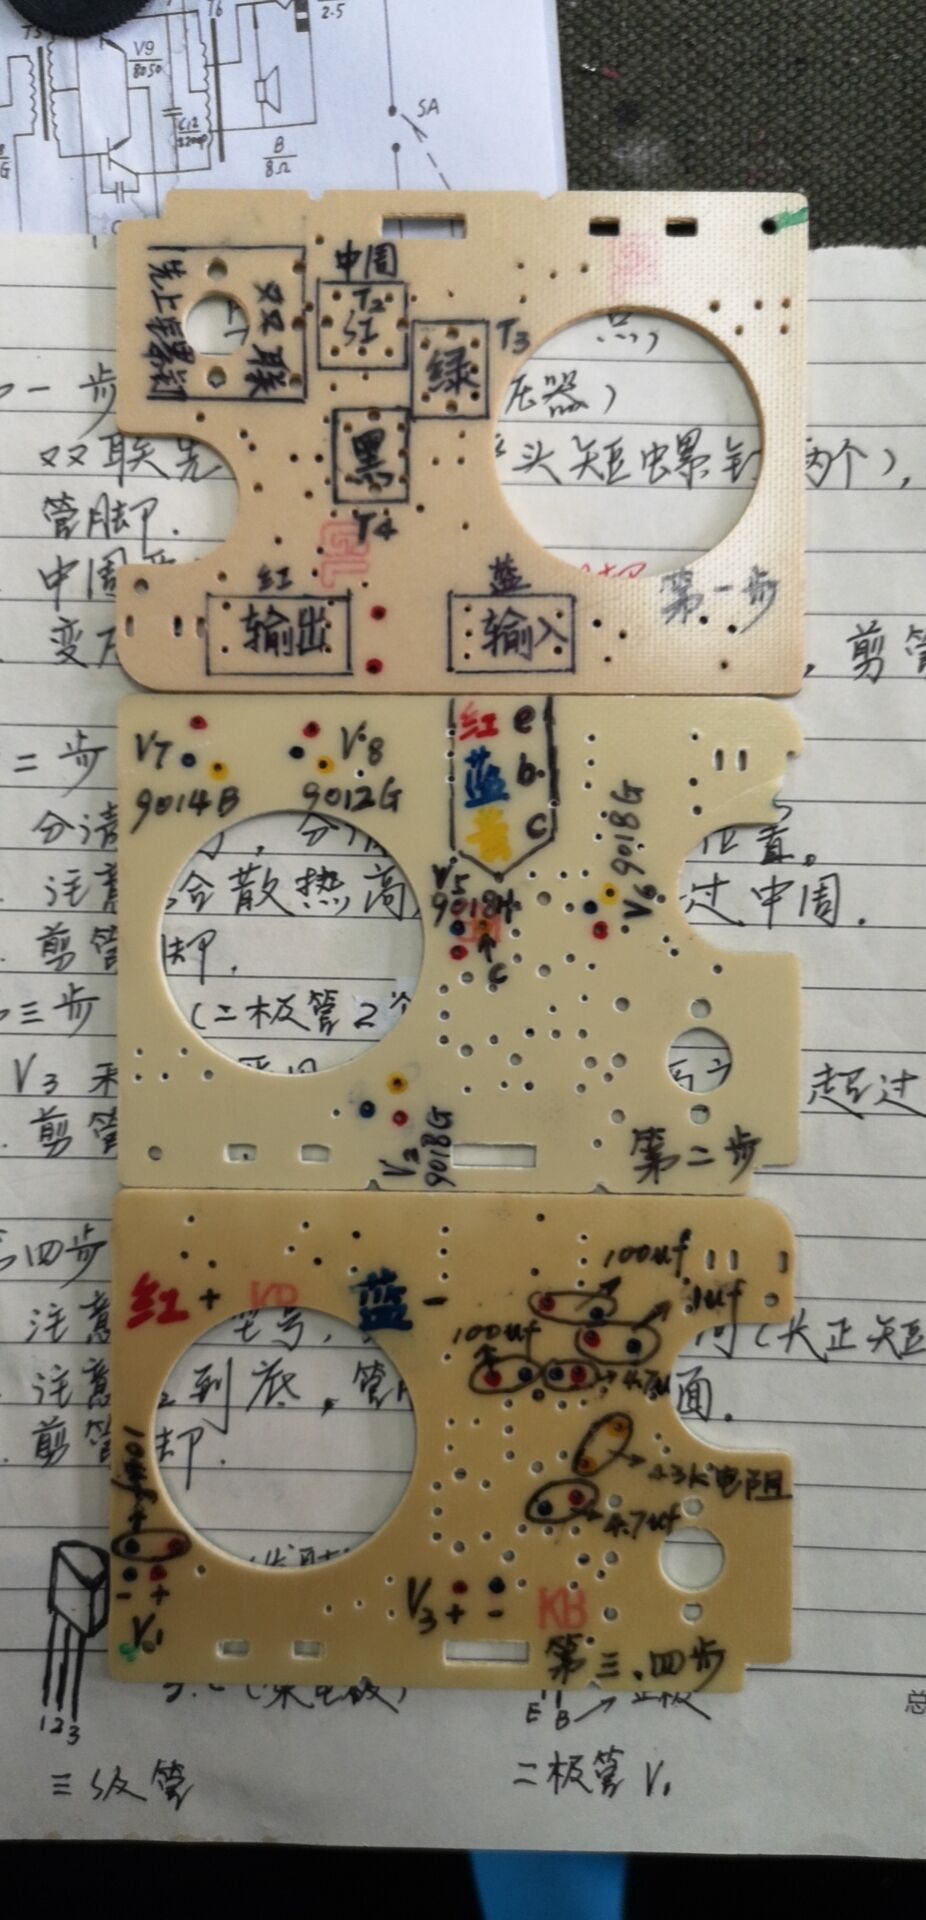 T6
2.5
V9
8050
SA
C12
220P
B
8Ω
中周
先上螺钉
双联
T2
红
T3
绿
黑
T4
GL
红
输出
蓝
输入
第一步
一步
压器)
双联先
头短螺钉
两个),
管脚.
中周
剪管
V7
9014B
V8
9012G
红 e
蓝 b.
黄 c
V5
9018H
c
V6 9018G
V2
9018G
第二步
二步
分清
位置。
注意
合散热高
过中周.
剪管
脚.
三步
(二极管2个
V3
超过
剪管
红 +
KB
蓝 -
100uf
1uf
100uf
4.7u
4.3K电阻
4.7uf
- +
V1
V3 + -
KB
第三.四步
四步
注意
型号,
(长正短
注意
到底.管
面.
剪管
脚.
123
三级管
E B
正极
二极管 V1
总